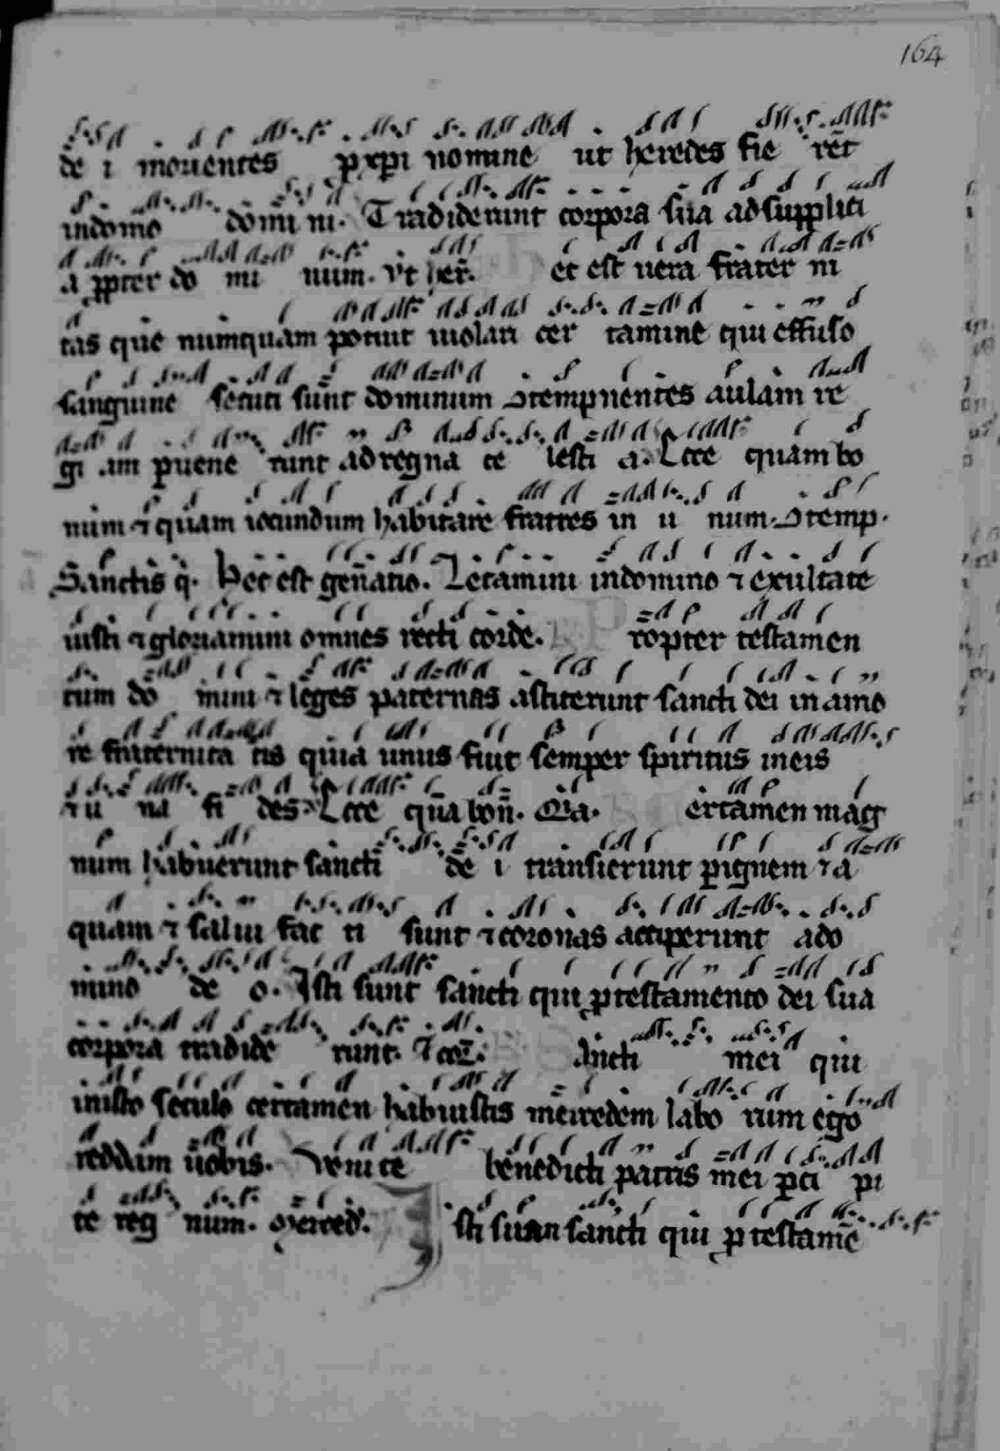 164
de i mouentes p xpi nomine ut heredes fie rēt
indomo domi ni. Tradiderunt corpora sua adsupplici
a ꝓpter do mi num. Vt her̄. et est uera frater ni
tas que numquam potuit uiolari cer tamine qui effuso
sanguine secuti sunt dominum ↄtempnentes aulam re
gi am puene runt adregna ce lesti a. Ecce quam bo
num ⁊ quam iocundum habitare fratres in u num. ↄtemp.
Sanctis q̇. Hec est gen̄atio. Letamini indomino ⁊ exultate
iusti ⁊ gloriamini omnes recti corde. ropter testamen
tum do mini ⁊ leges paternas astiterunt sancti dei in amo
re fraternita tis quia unus fuit semper spiritus ineis
⁊ u na fi des. Ecce qua bon̄. Q̄a. ertamen mag
num habuerunt sancti de i transierunt pignem ⁊ a
quam ⁊ salui fac ti sunt ⁊ coronas acceperunt ado
mino de o. Isti sunt sancti qui ꝓ testamento dei sua
corpora tradide runt. ⁊ coꝛ̄. ancti mei qui
inisto seculo certamen habuistis mercedem labo rum ego
reddam uobis. Venite benedicti patris mei pci pi
te reg num. Merced̄. Isti suan sancti qui ꝓ testam̄e